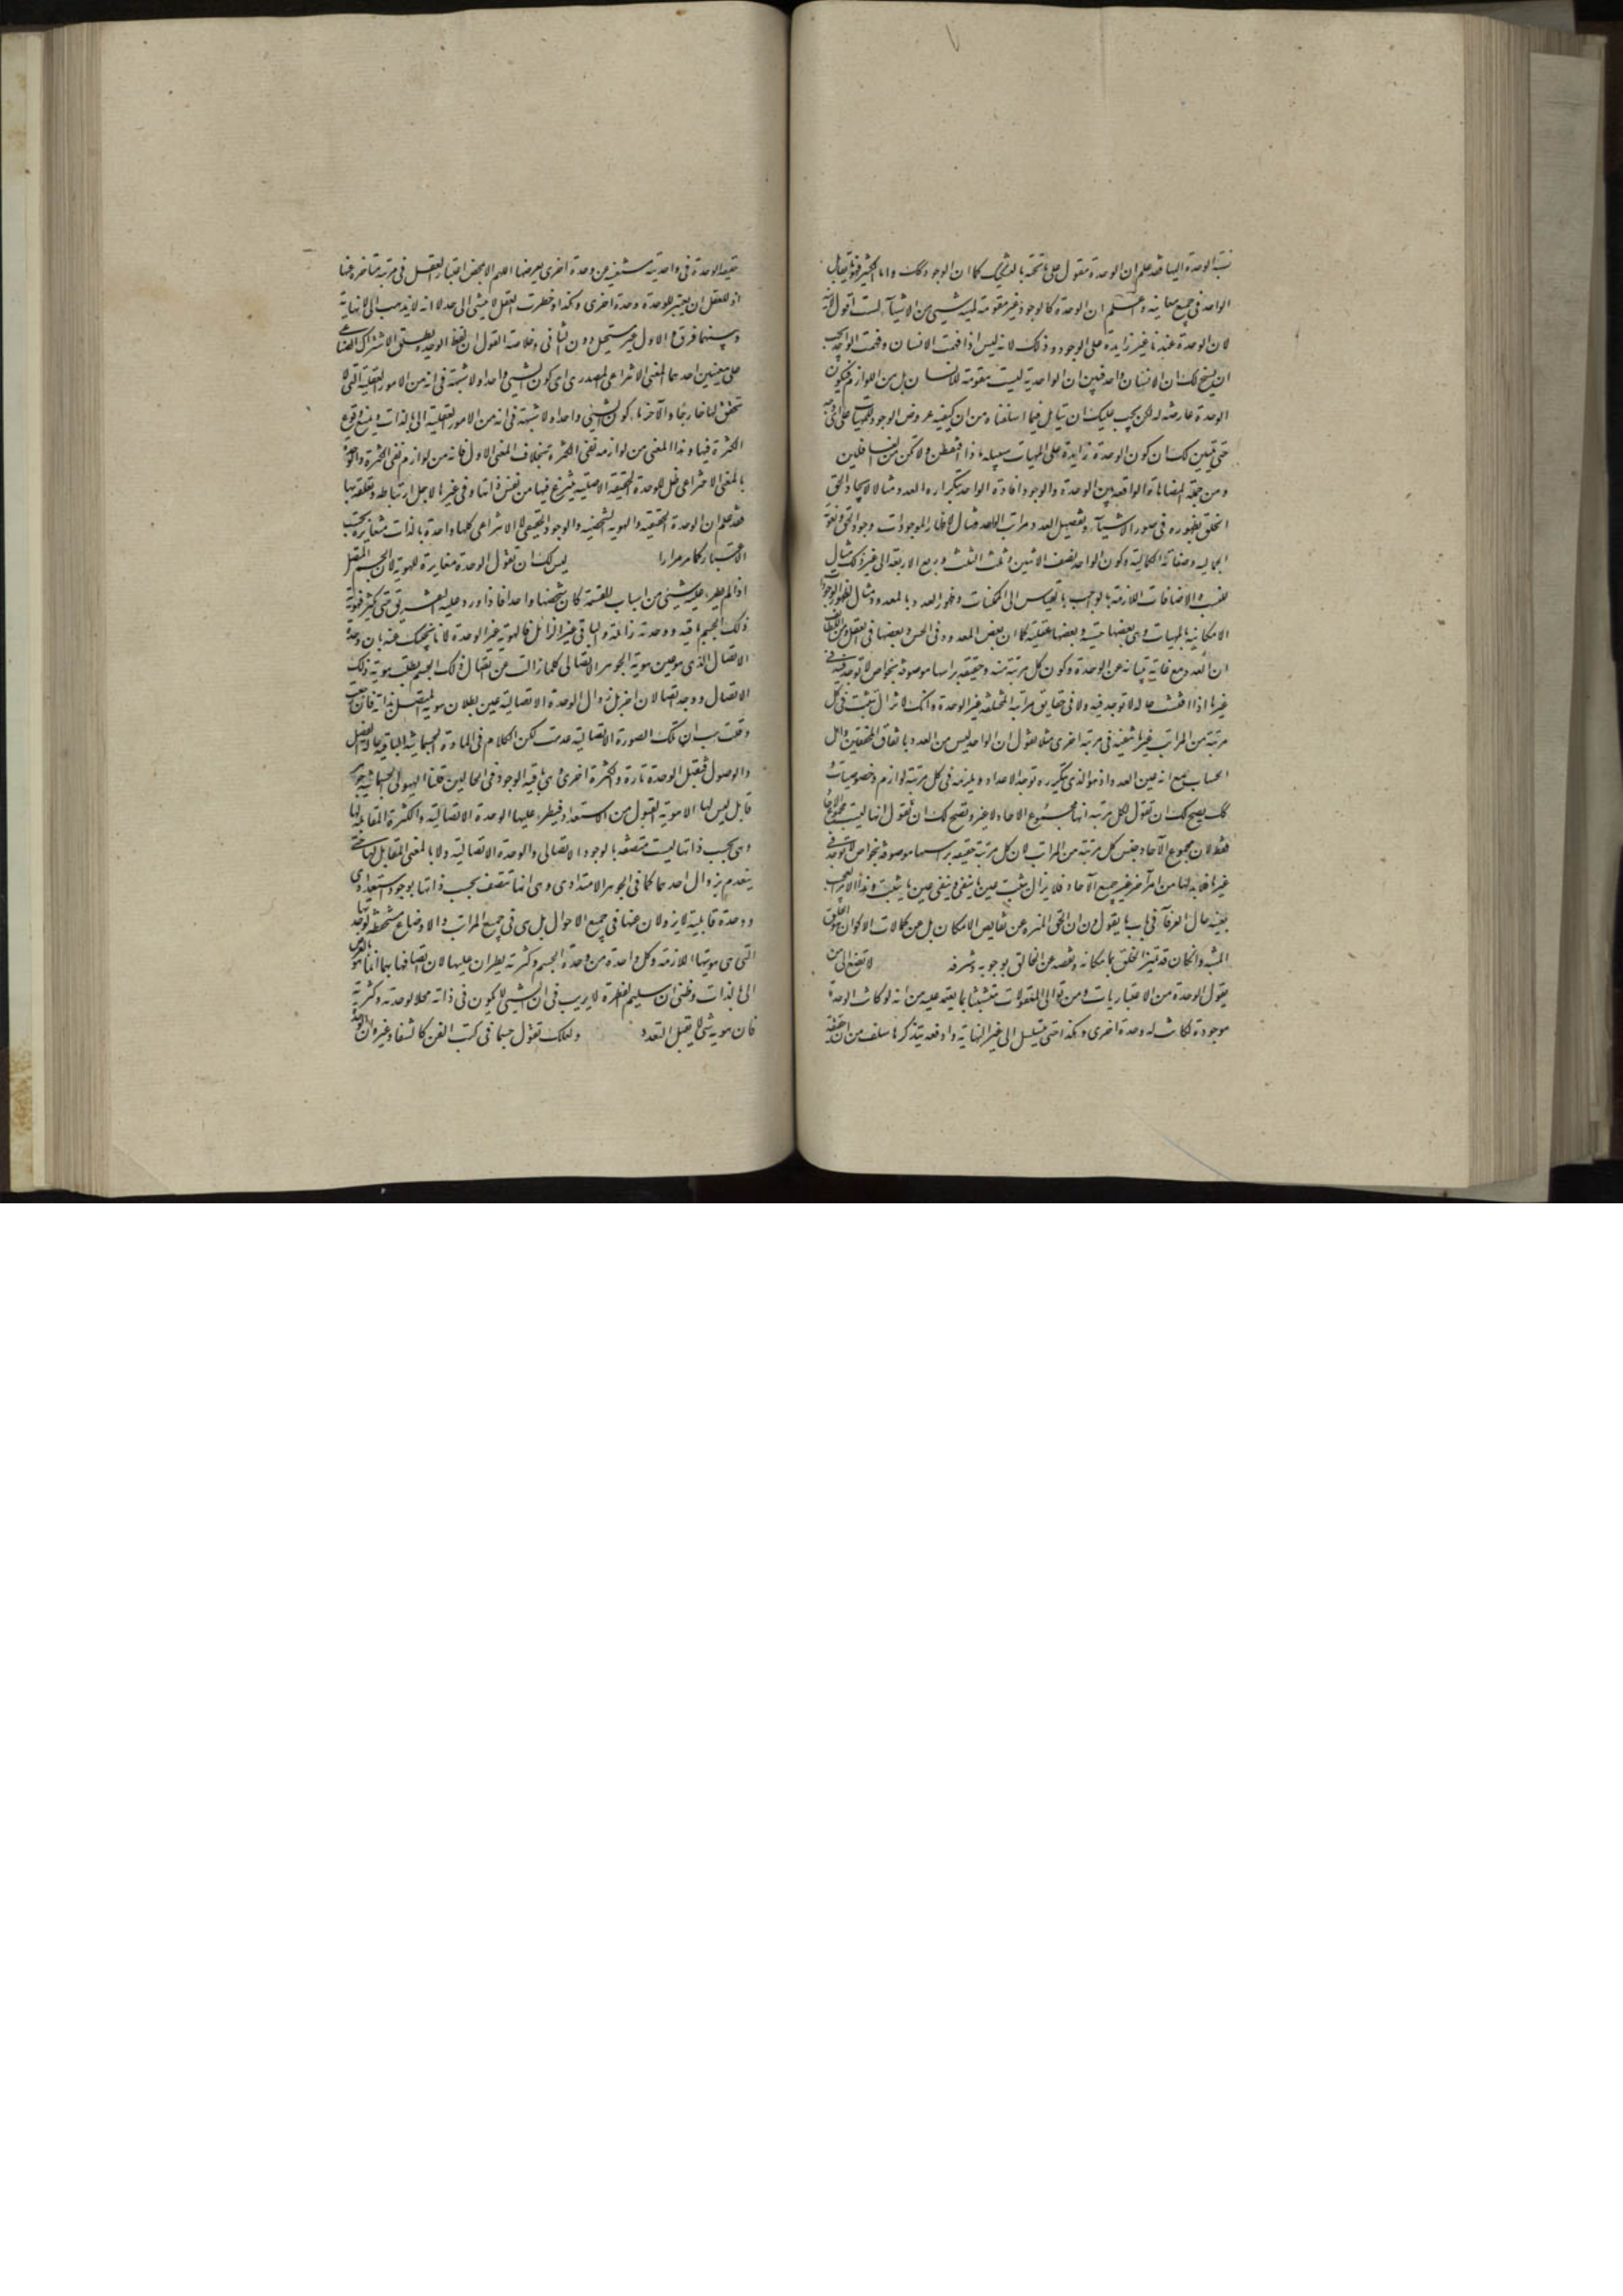 نسبة الوحدة اليها فقد علم ان الوحدة مقول على ما تحته بالتشكيك كما ان الوجود كك واما الكثير فهو ما يقابل
الواحد فى جميع معانيه واعلم ان الوحدة كالوجود غير مقومة لمهية شيئ من الاشيآء لست اقول لانية
لان الوحدة عندنا غير زايدة على الوجود وذلك لانه ليس اذا فهمت الانسان وفهمت الواحد يجب
ان يسنح لك ان الانسان واحد فبين ان الواحدية ليست مقومة للانسان بل من اللوازم فيكون
الوحدة عارضة له لكن يجب عليك ان تتامل فيما اسلفناه من ان كيفية عروض الوجود للمهيات على اى وجه
حتى يتبين لك ان كون الوحدة زايدة على المهيات سبيله ماذا افتفطن ولا تكن من الغافلين
ومن جملة المضاهاة الواقعة بين الوحدة والوجود افادة الواحد بتكراره العدد مثالا لايجاد الحق
الخلق بظهوره فى صور الاشيآء وتفصيل العدد مراتب الواحد مثال لاظهار الموجودات وجود الحق ونعوته
الجمالية وصفاته الكمالية وكون الواحد نصف الاثنين وثلث الثلثة وربع الاربعة الى غير ذلك مثال
للنسب والاضافات اللازمة بالواجب بالقياس الى الممكنات وظهور العدد بالمعدود مثال لظهور الوجود
الامكانيه بالمهيات وهى بعضها حسية وبعضها عقلية كما ان بعض المعدود فى الحس وبعضها فى العقل ومن اللطايف
ان العدد مع غاية تباينه عن الوحدة وكون كل مرتبة منه حقيقة براسها موصوفة بخواص لا توجد فى
غيرها اذا فتشت حاله لا توجد فيه ولا فى حقايق مراتبه المختلفة غير الوحدة وانك لا تزال تثبت فى كل
مرتبة من المراتب غير ما تنفيه فى مرتبة اخرى مثلا تقول ان الواحد ليس من العدد باتفاق المحققين واهل
الحساب مع انه عين العدد اذ هو الذى بتكرره توجد الاعداد ويلزمه فى كل مرتبة لوازم وخصوصيات و
كك يصح لك ان تقول لكل مرتبة انها مجموع الاحاد لا غير ويصح لك ان تقول انها ليست مجموع الاحاد
فقط لان مجموع الآحاد جنس كل مرتبة من المراتب لان كل مرتبة حقيقة براسها موصوفة بخواص لا توجد فى
غيرها فلا بد لها من امر آخر غير جميع الآحاد فلا يزال يثبت عين ما ينفى وينفى عين ما يثبت وهذا الامر العجيب
بعينه حال العرفآء فى باب ما يقولون ان الحق المنزه عن نقايص الامكان بل عن كمالات الاكوان هو الخلق
المشبه وان كان قد تميز الخلق بامكانه ونقصه عن الخالق بوجوبه وشرفه لا تصغ الى من
يقول الوحدة من الاعتباريات ومن ثوانى المعقولات متشبثا بما يعتمد عليه من انه لو كانت الوحدة
موجودة لكانت له وحدة اخرى وهكذا حتى يتسلسل الى غير النهاية وادفعه بتذكر ما سلف من ان حقيقة
حقيقة الوحدة فى واحديته مستغن عن وحدة اخرى يعرضها اللهم الا بمحض اعتبار العقل فى مرتبة متاخرة عنها
اذ للعقل ان يعتبر للوحدة وحدة اخرى وهكذا وخطرت العقل لا ينتهى الى حد لا انه لا يذهب الى لا نهاية
وبينهما فرق والاول غير مستحيل دون الثانى وخلاصة القول ان لفظ الوحدة يطلق بالاشتراك الصناعى
على معنيين احدهما المعنى الانتزاعى المصدرى اى كون الشيئ واحدا ولا شبهة فى انه من الامور العقلية التى لا
تحقق لها خارجا والآخر ما به كون الشيئ واحدا ولا شبهة فى انه من الامور العقلية الى بالذات ويمنع وقوع
الكثرة فيها وهذا المعنى من لوازمه نفى الكثرة بخلاف المعنى الاول فانه من لوازم نفى الكثرة والوحدة
بالمعنى الانتزاعى ظل للوحدة الحقيقة الاصلية ينتزع فيها من نفس ذاتها وفى غيرها لاجل ارتباطه وتعلقه بها
فقد علم ان الوحدة الحقيقية والهوية الشخصية والوجود الحقيقى لا الانتزاعى كلها واحدة بالذات متغايرة بحسب
الاعتبار كما مر مرارا ليس لك ان تقول الوحدة مغايرة للهوية لان الجسم المتصل
اذا لم يطرء عليه شيئى من اسباب القسمة كان شخصا واحدا فاذا ورد عليه التفريق حتى يتكثر فهوية
ذلك الجسم باقية ووحدته زائلة والباقى غير الزائل فالهوية غير الوحدة لانا نجيبك عنه بان وحدة
الاتصال الذى هو عين هوية الجوهر الاتصالى كلما زالت عن اتصال ذلك الجسم بطلت هوية ذلك
الاتصال ووجد اتصالان اخر بل زوال الوحدة الاتصالية عين بطلان هوية المتصل بذاته فان رجعت
وقلت هب ان تلك الصورة الاتصالية عدمت لكن الكلام فى المادة الجسمانية الباقية حالة الفصل
والوصول فيقبل الوحدة تارة والكثرة اخرى وهى باقية الوجود فى الحالين قلنا الهيولى الجسمانية جوهر
قابل ليس لها الا هوية القبول من الاستعداد فيطرء عليها الوحدة الاتصالية والكثرة المقابلة لها
وهى بحسب ذاتها ليست متصفة بالوجود الاتصالى والوحدة الاتصالية ولا بالمعنى المقابل لها حتى
ينعدم بزوال احدهما كما فى الجوهر الامتدادى وهى انها تتصف بحسب ذاتها بوجود استعدادى
ووحدة قابلية لا يزولان عنها فى جميع الاحوال بل هى فى جميع المراتب والاوضاع منحفظة لوحدتها
التى هى هويتها اللازمة وكل واحدة من وحدة الجسم وكثرته يطران عليها لان اتصافها بهما انما هو بالعرض
الى بالذات وظنى ان سليم الفطرة لا يريب فى ان الشيئ لا يكون فى ذاته محلا لوحدته وكثرته
فان هوية شئ لا يقبل التعدد ولعلك تقول حسبما فى كتب الفن كالشفاء وغيره ان الوحدة